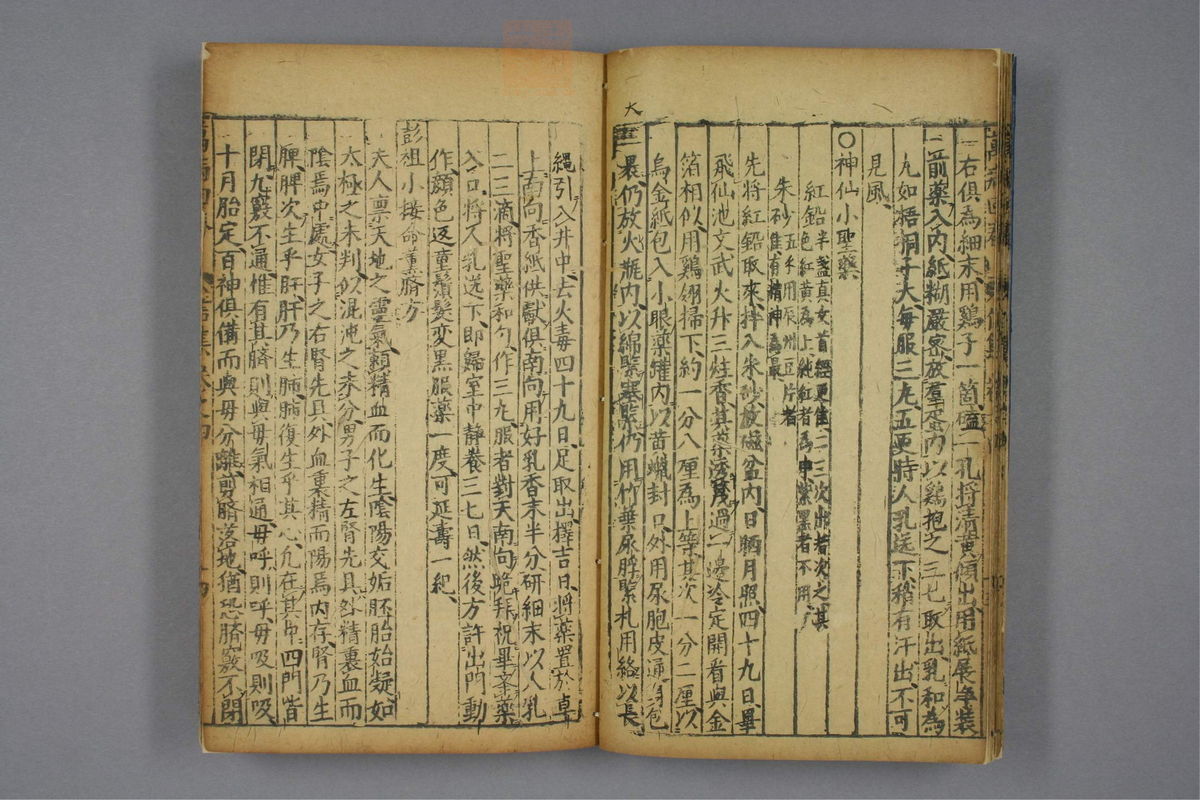 右俱為細末用鷄子一箇磕一孔將清黃傾出用紙展乹裝
前藥入內紙糊嚴密放羣蛋內以鷄抱之三七取出乳和為
丸如梧桐子大每服三丸五更時人乳送下稍有汗出不可
見風
〇神仙小聖藥
紅鉛半盞真女首經更佳二三次出者次之其色紅黃為上純紅者為中紫黑者不用
朱砂五錢用辰州豆片者佳有精神為最
先將紅鉛取來拌入朱砂放磁盆內日晒月照四十九日畢
飛仙池文武火升三炷香其藥過一邊冷定開看與金
箔相似用鷄翎掃下約一分八厘為上等其次一分二厘以
烏金紙包入小眼藥罐內以黃蠟封口外用尿胞皮通身包
裹仍放火瓶內以綿緊塞緊仍用竹葉尿脬緊札用絡以長
繩引入井中去火毒四十九日足取出擇吉日將藥置於卓
上南向香紙供獻俱南向用好乳香末半分研細末以人乳
二三滴將聖藥和勻作三丸服者對天南向跪拜祝畢藥
入口將人乳送下即歸室中靜養三七日然後方許出門動
作顏色返童鬚髮变黑服藥一度可延壽一紀
彭祖小接命熏臍方
夫人禀天地之靈氣頼精血而化生陰陽交姤胚胎始凝如
太極之未判似混沌之未分男子之左腎先具然精裹血而
陰焉中處女子之右腎先且外血裹精而陽焉內存腎乃生
脾脾次生乎肝肝乃生肺肺復生乎其心九在其中四門皆
閉九竅不通惟有其臍則與毋氣相通毋呼則呼毋吸則吸
十月胎定百神俱備而與毋分離剪臍落地猶恐臍竅不閉